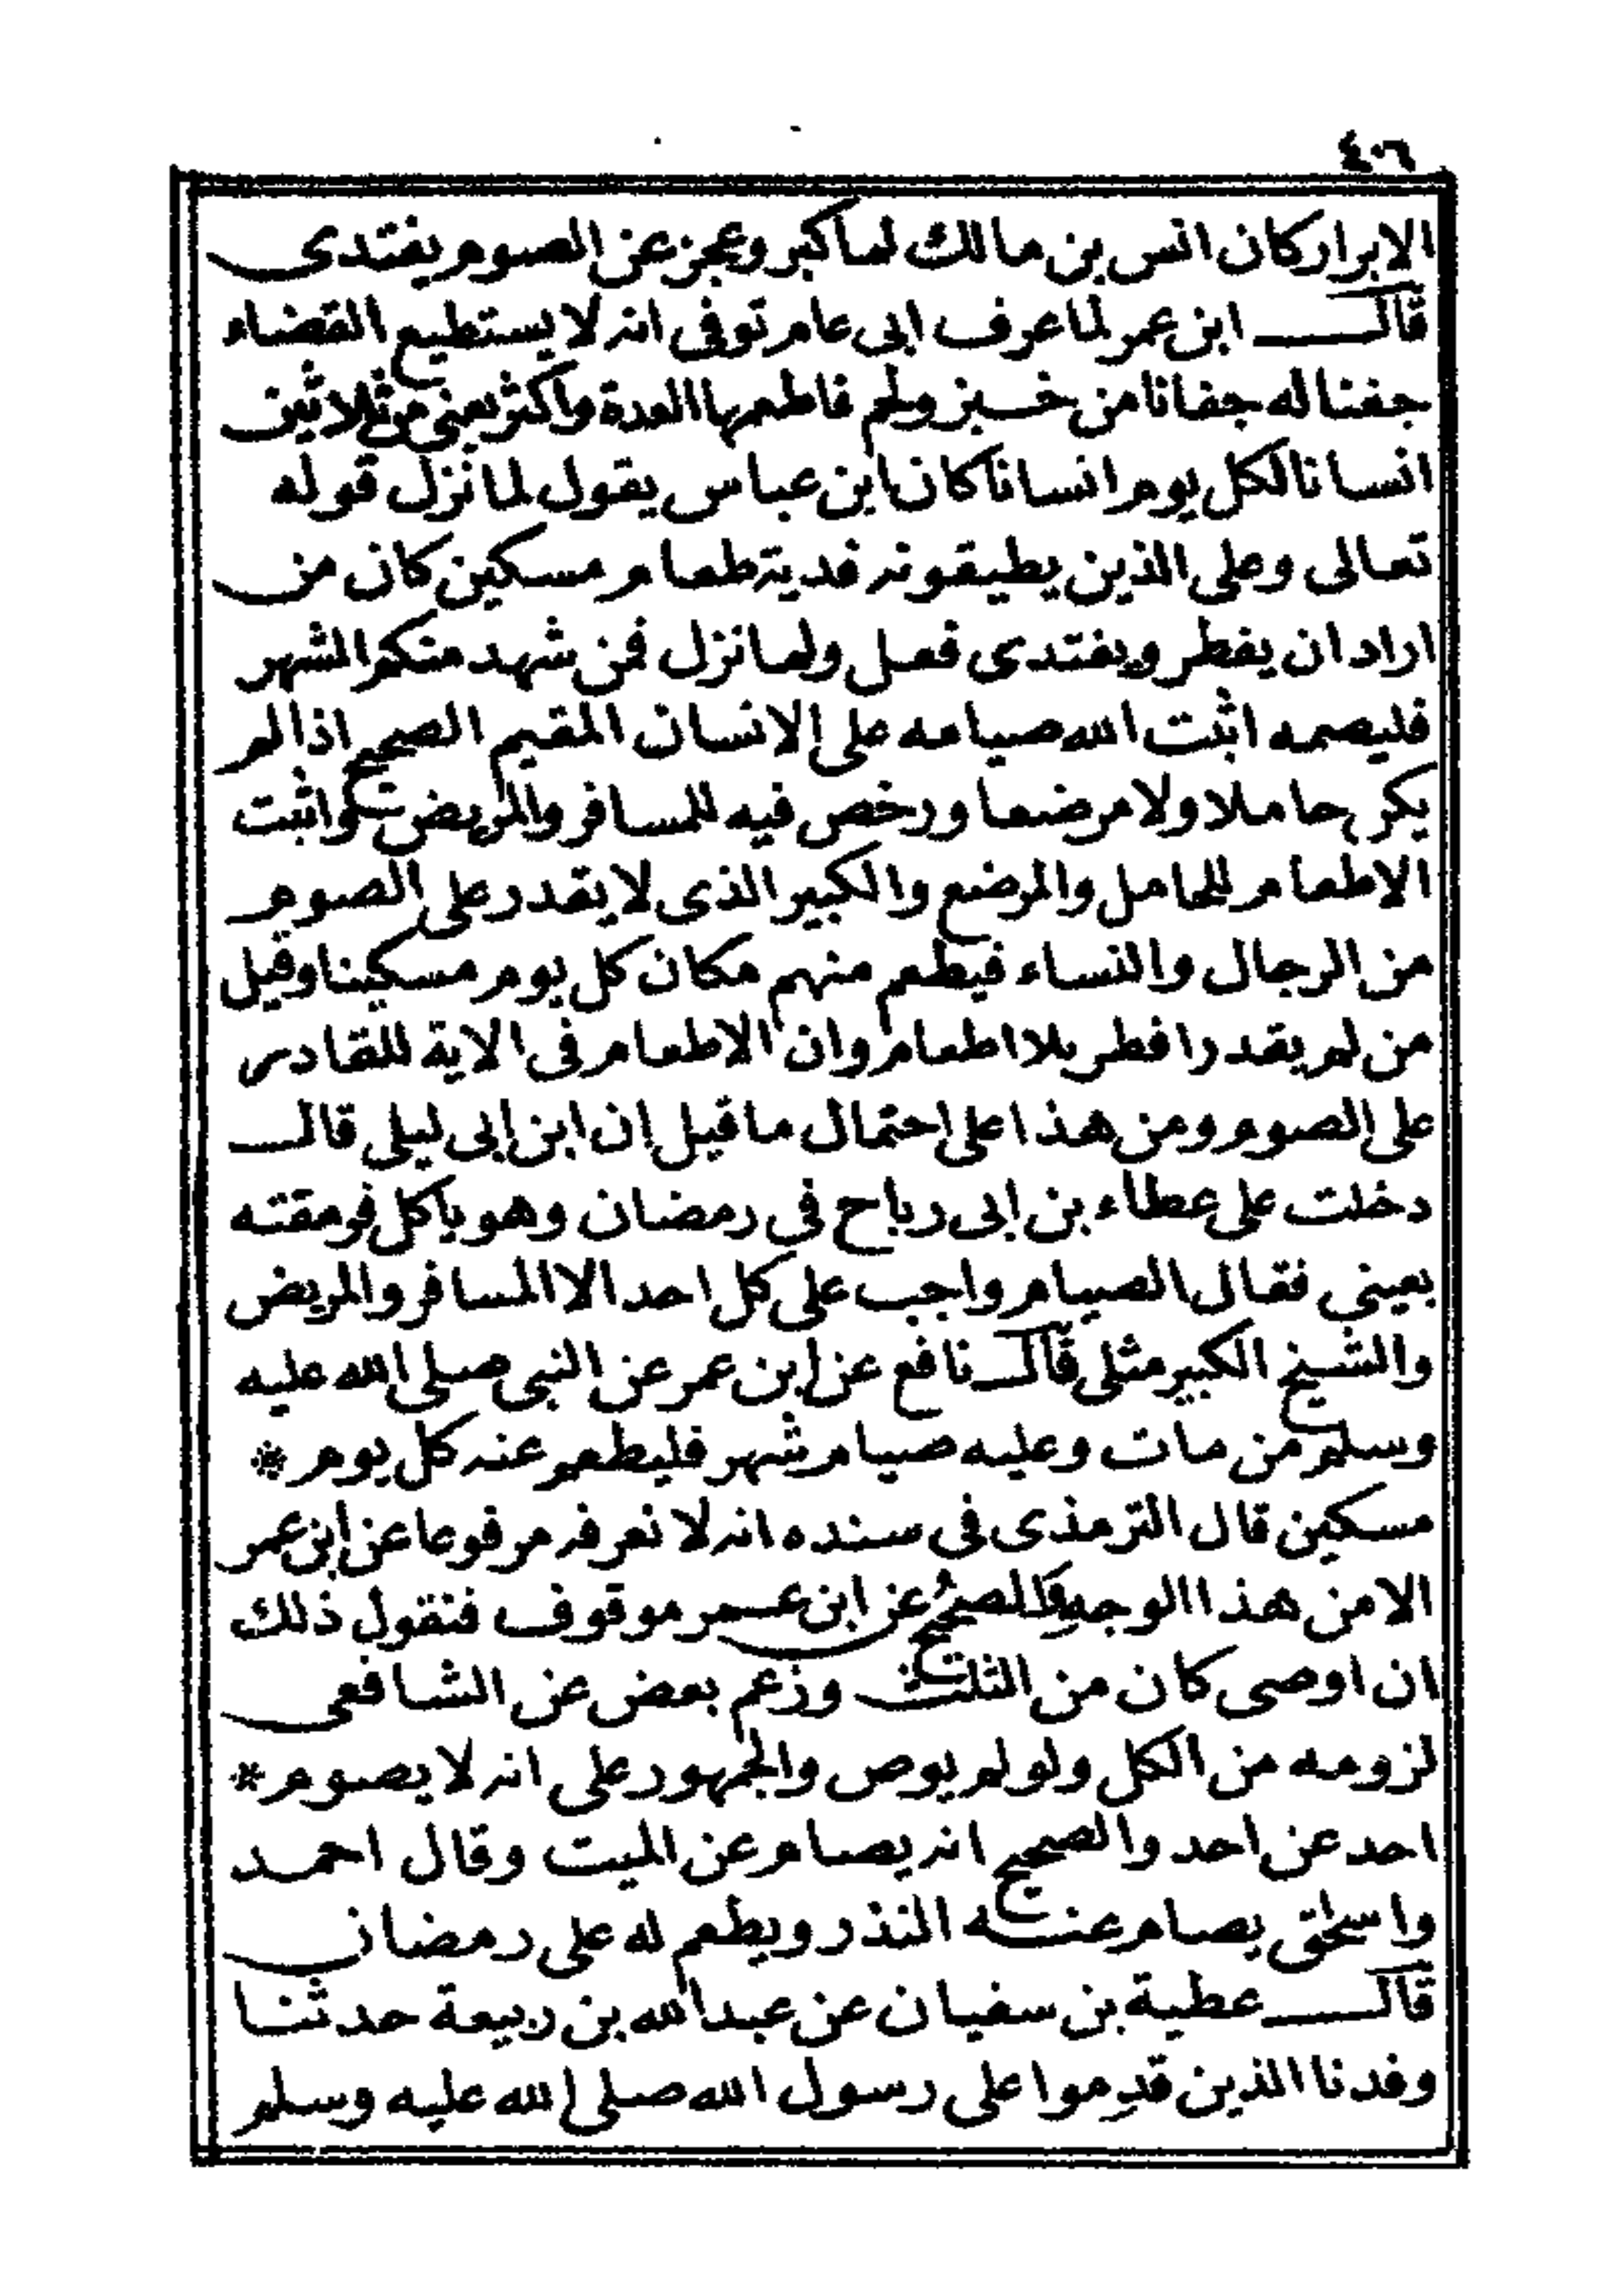 ٤٠٦
الابرار كان انس بن مالك لما كبر وعجز عن الصوم يفتدى
قال ابن عمر لما عرف ابى عام توفى انه لا يستطيع القضاء
جفنا له جفانا من خبز ولحم فاطعمها العدة واكثر يعنى من ثلاثين
انسانا لكل يوم انسانا كان ابن عباس يقول لما نزل قوله
تعالى وعلى الذين يطيقونه فدية طعام مسكين كان من
اراد ان يفطر ويفتدى فعل ولما نزل فمن شهد منكم الشهر
فليصمه اثبت الله صيامه على الانسان المقيم الصحيح اذا لم
يكن حاملا ولا مرضعا ورخص فيه للمسافر والمريض واثبت
الاطعام للحامل والمرضع والكبير الذى لا يقدر على الصوم
من الرجال والنساء فيطعم منهم مكان كل يوم مسكينا وقيل
من لم يقدر افطر بلا اطعام وان الاطعام فى الاية للقادر
على الصوم ومن هذا على احتمال ما قيل ان ابن ابى ليلى قال
دخلت على عطاء بن ابى رباح فى رمضان وهو ياكل فومقته
بعينى فقال الصيام واجب على كل احد الا المسافر والمريض
والشيخ الكبير مثلى قال نافع عن ابن عمر عن النبى صلى الله عليه
وسلم من مات وعليه صيام شهر فليطعم عنه كل يوم *
مسكين قال الترمذى فى سنده انه لا نعرفه مرفوعا عن ابن عمر
الا من هذا الوجه والصحيح عن ابن عمر موقوف فنقول ذلك
ان اوصى كان من الثلث وزعم بعض عن الشافعى
لزومه من الكل ولو لم يوص والجمهور على انه لا يصوم *
احد عن احد والصحيح انه يصام عن الميت وقال احمد
واسحق يصام عنه النذر ويطعم له على رمضان
قال عطية بن سفيان عن عبد الله بن ربيعة حدثنا
وفدنا الذين قدموا على رسول الله صلى الله عليه وسلم